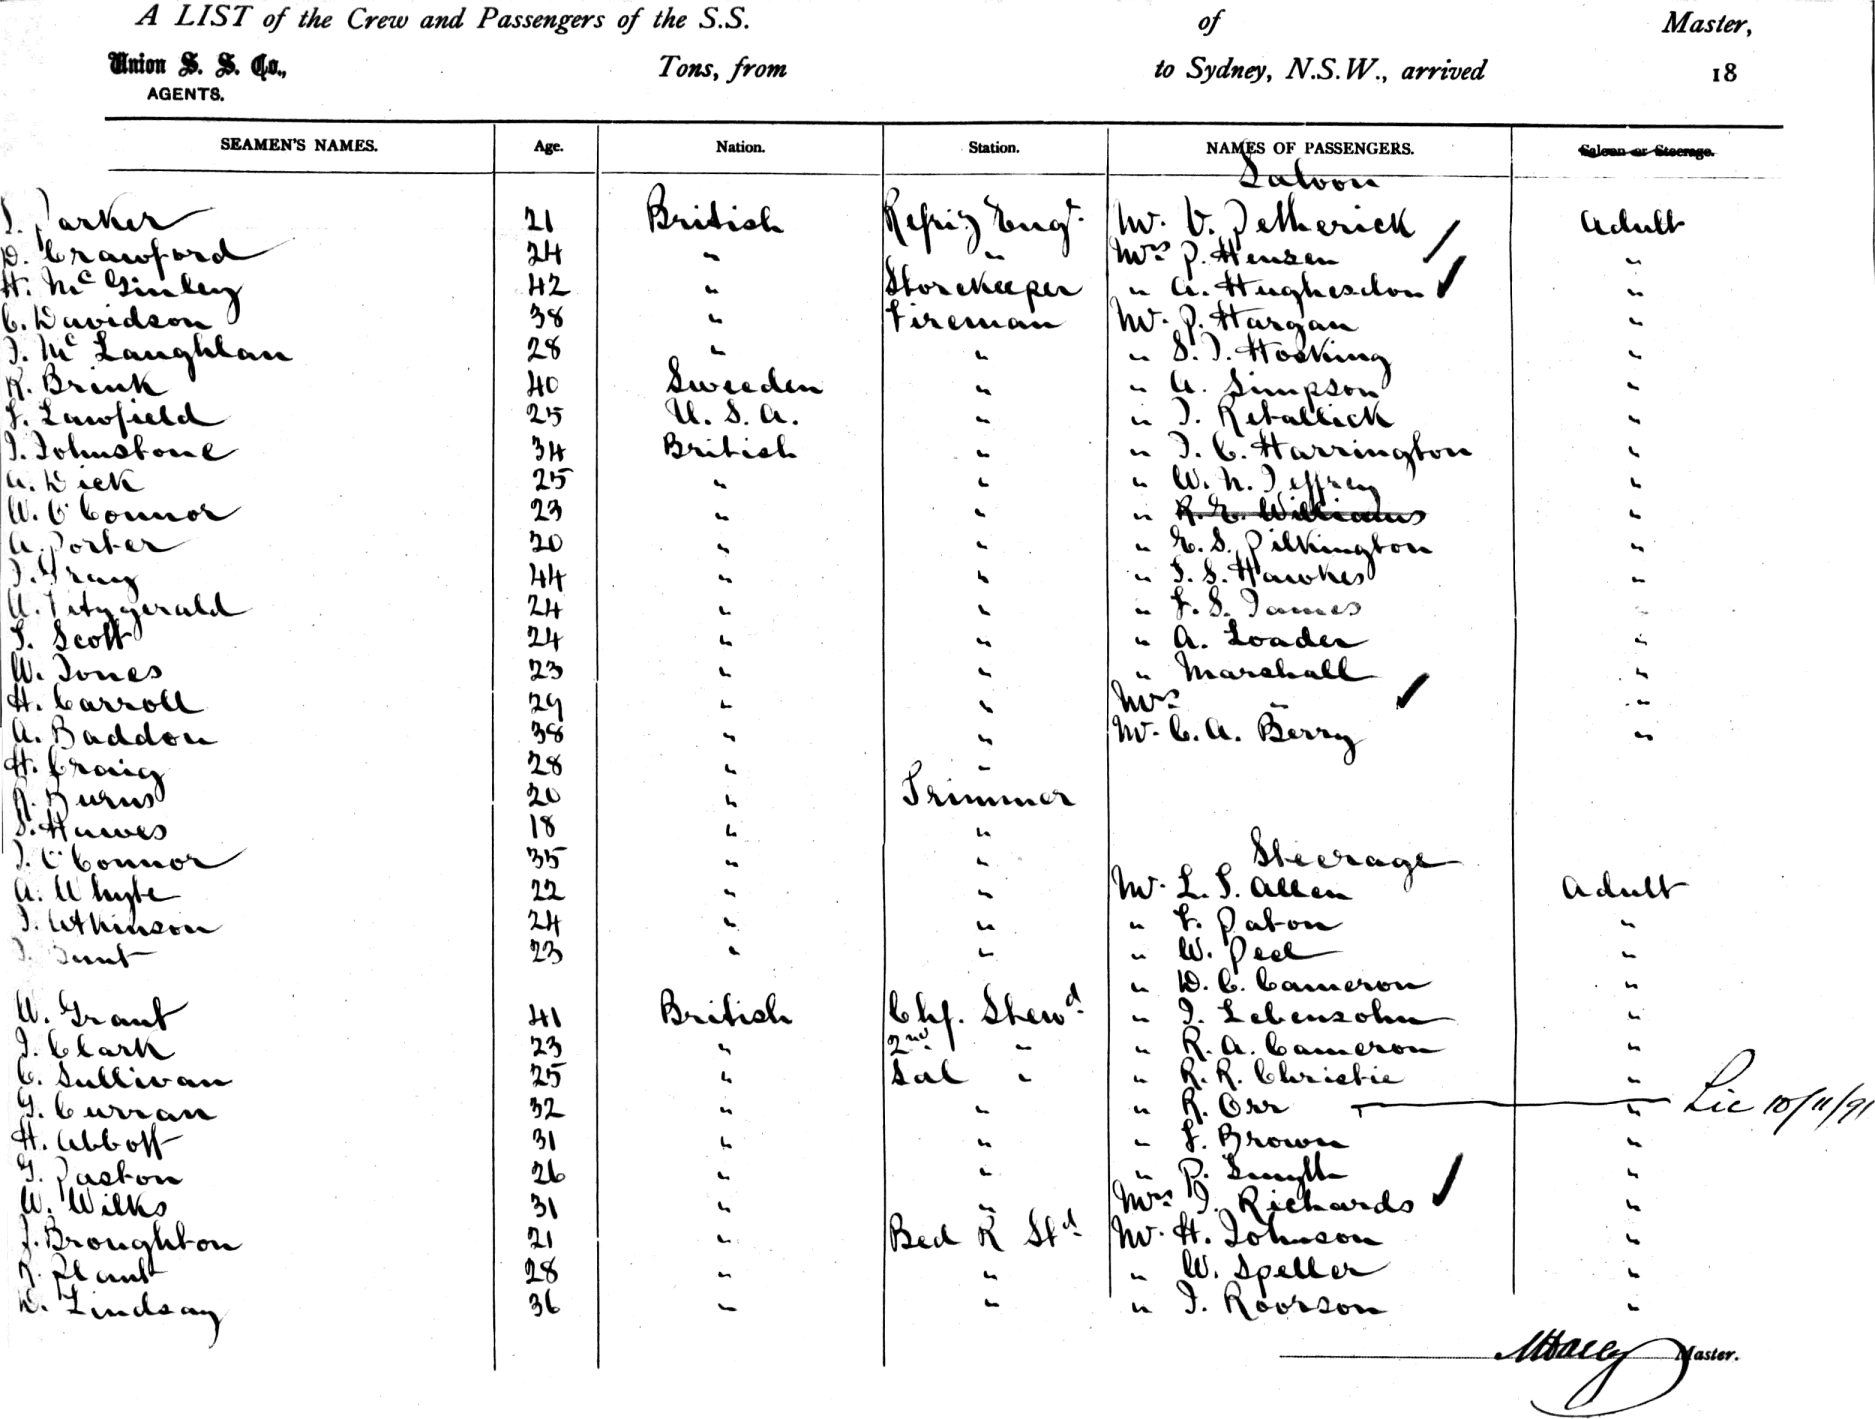 A LIST of the Crew and Passengers of the S.S. of Master,
Union S. S. Co., Tons, from to Sydney, N.S.W., arrived 18
AGENTS.
SEAMEN'S NAMES. Age. Nation. Station. NAMES OF PASSENGERS. Saloon or Steerage.
Saloon
Parker 21 British Refrig Engr. Mr. V. Petherick Adult
D. Crawford 24 " " Mrs P. Hensen "
H. McGinley 42 " Storekeeper " A. Hughesdon "
C. Davidson 38 " Fireman Mr. P. Hargan "
J. Mc Laughlan 28 " " " S. J. Hosking "
R. Brink 40 Sweeden " " A. Simpson "
F. Lawfield 25 U. S. A. " " J. Retallick "
J. Johnstone 34 British " " J. C. Harrington "
A. Dick 25 " " " W. N. Jeffrey "
W. O'Connor 23 " " " R. E. Williams "
A. Porter 20 " " " E. S. Pilkington "
J. Gray 44 " " " F. S. Hawkes "
A. Fitzgerald 24 " " " F. S. James "
F. Scott 24 " " " A. Loader "
W. Jones 23 " " " Marshall "
H. Carroll 29 " " Mrs " "
A. Baddon 38 " " Mr. C. A. Berry "
H. Craig 28 " "
R. Burns 20 " Trimmer
S. Hawes 18 " "
J. O'Connor 35 " " Steerage
A. Whyte 22 " " Mr. L. S. Allen Adult
J. Atkinson 24 " " " F. Paton "
J. 23 " " " W. Peel "
" D. C. Cameron "
W. Grant 41 British Chf. Stewd. " J. Lebensohn "
J. Clark 23 " 2nd. " " R. A. Cameron "
C. Sullivan 25 " Sal " " R. R. Christie "
G. Curran 32 " " " R. Orr " Lic 10/11/91
H. Abbott 31 " " " F. Brown "
G. Paston 26 " " " P. Smyth "
W. Wilks 31 " " Mrs J. Richards "
J. Broughton 21 " Bed R Std. Mr. H. Johnson "
R. Plant 28 " " " W. Speller "
D. Lindsay 36 " " " J. Roorson "
Master.